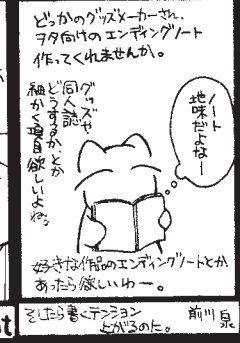 どっかのグッズメーカーさん、
ヲタ向けのエンディングノート
作ってくれませんか。
ノート
地味だよなー
グッズや
同人誌
どうするか、とか
細かく項目欲しいよね。
好きな作品のエンディングノートとか
あったら欲しいわー。
そしたら書くテンション
上がるのに。
前川 泉